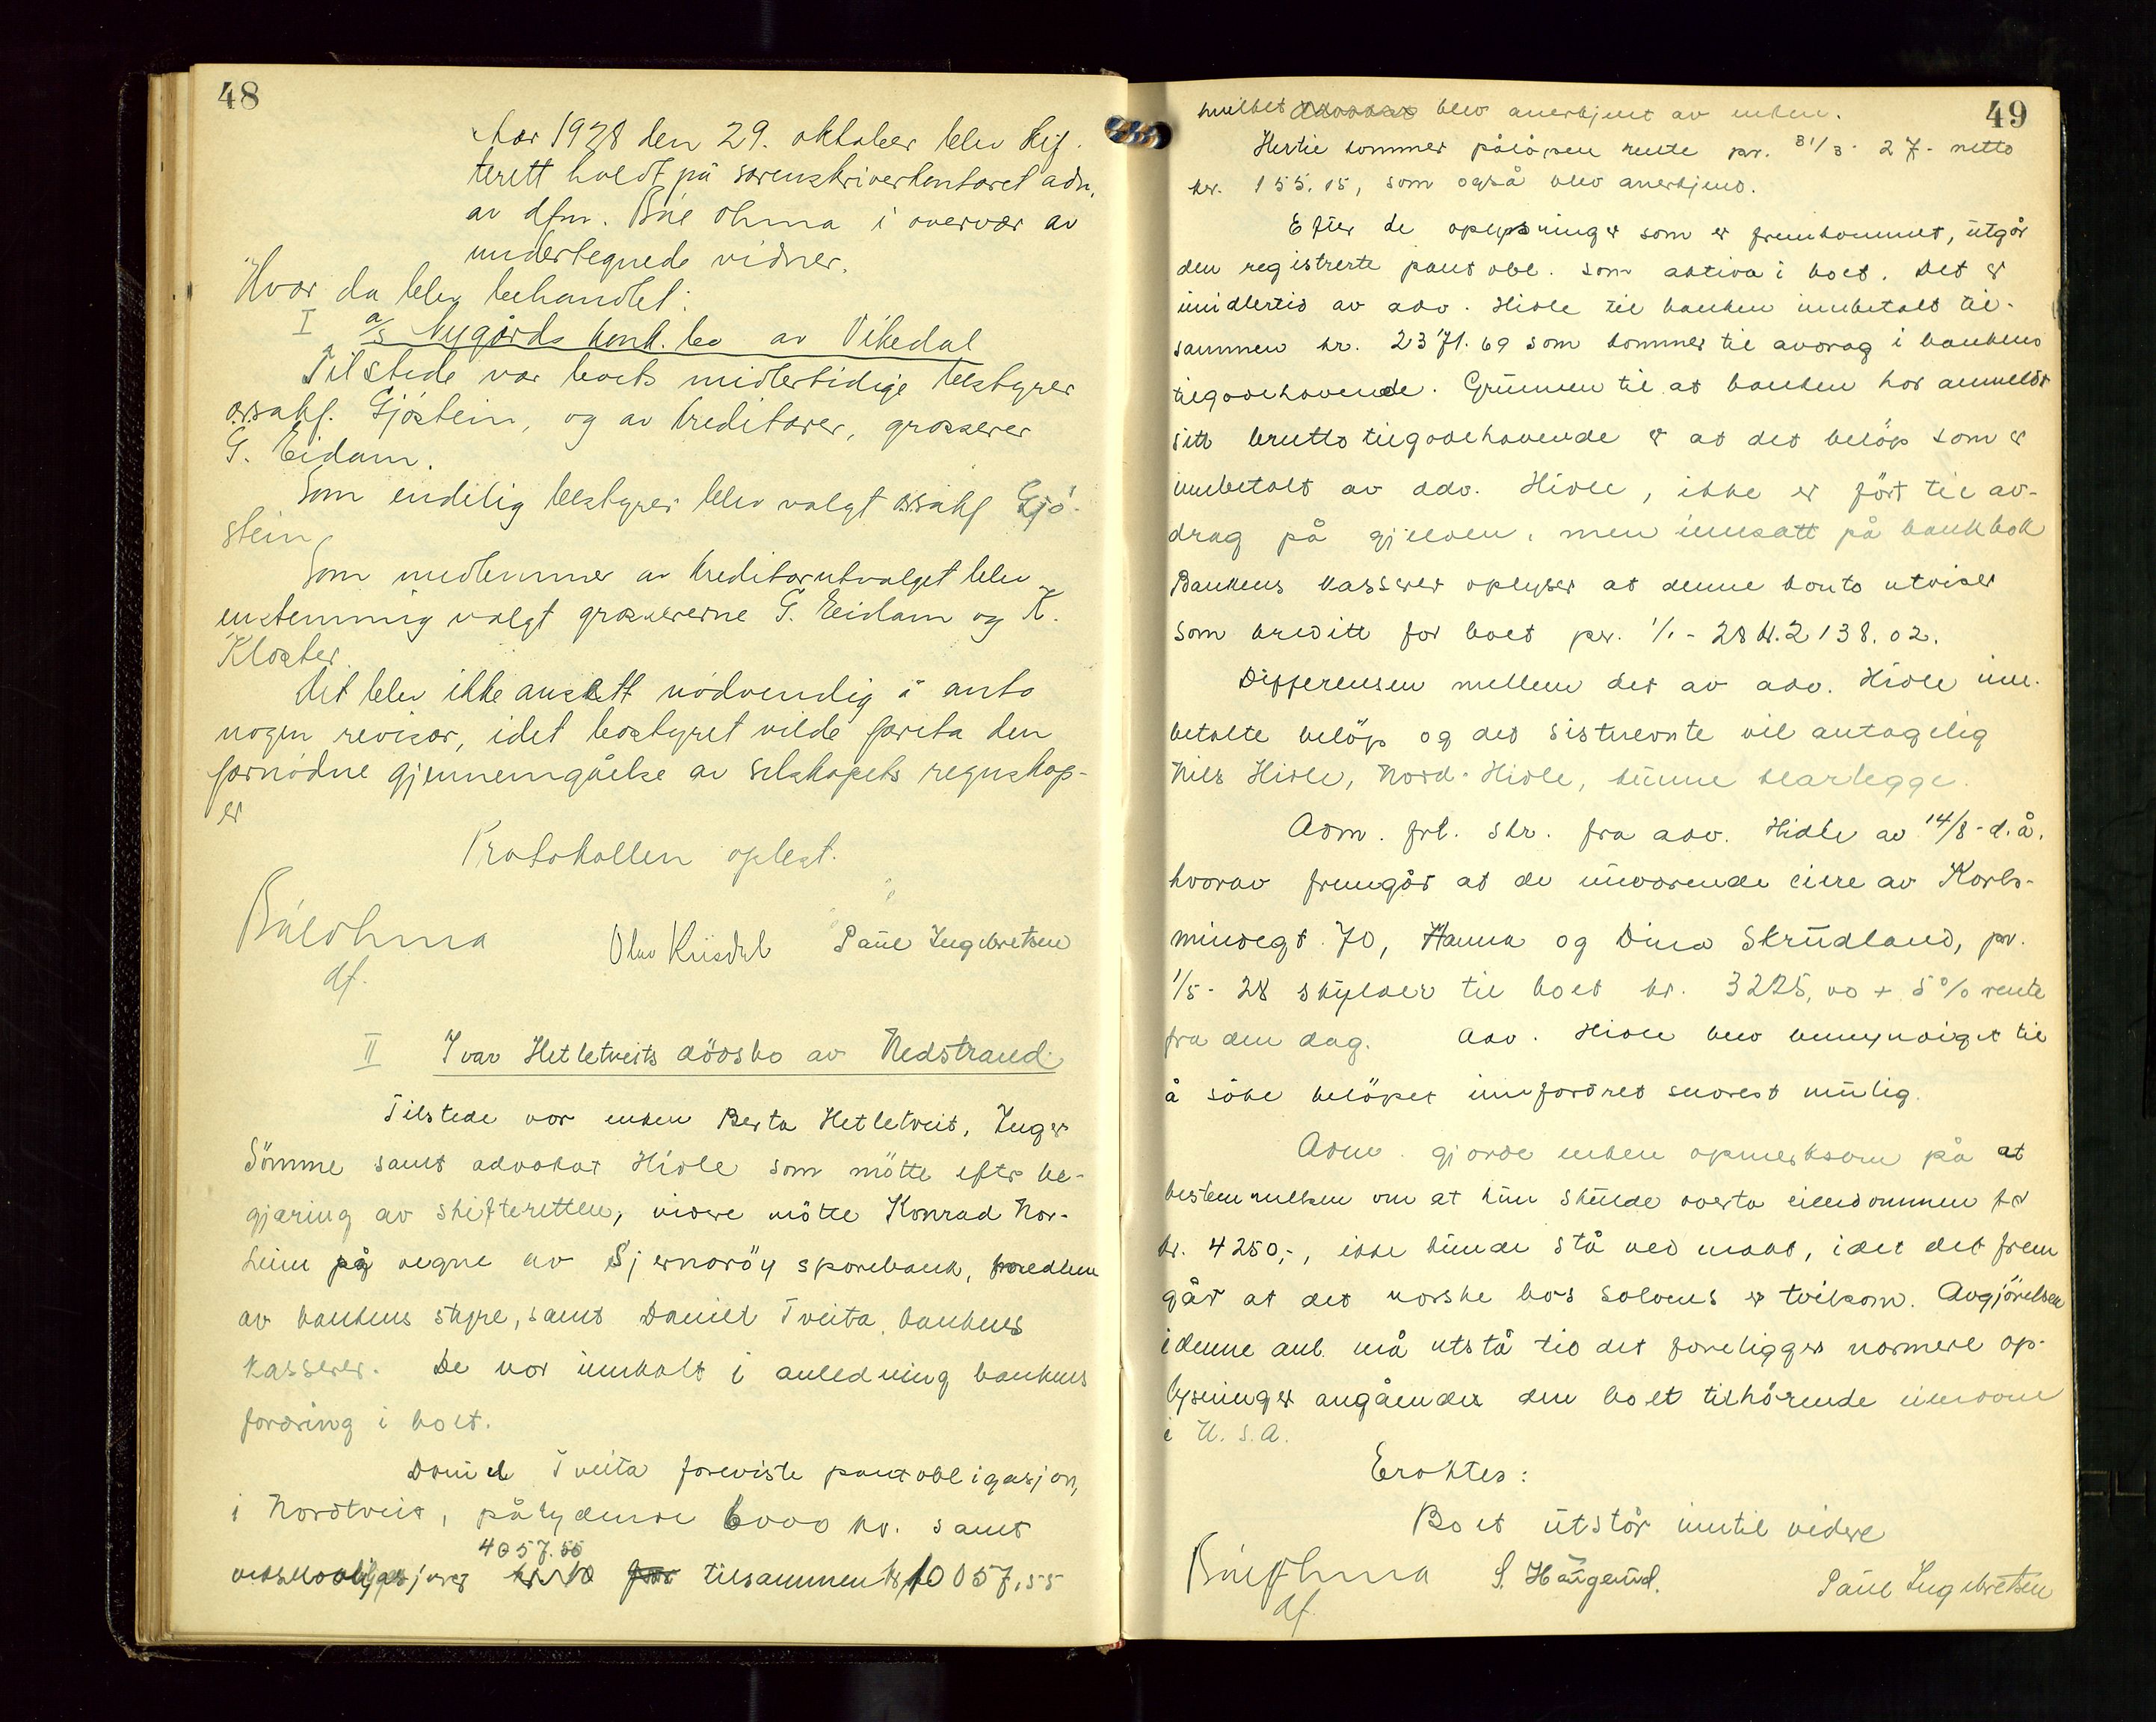 48
Aar 1928 den 29. oktober blev skif-
terett holdt på sorenskriverkontoret adm.
av dfm. Búe Ohma i overvær av
undertegnede vidner.
Hvor da blev behandlet:
I a/s Nygårds konk. bo av Vikedal
Tilstede var boets midlertidige bestyrer
o.r.sakf. Gjöstein, og av kreditorer, grosserer
G. Eidam.
Som endelig bestyrer blev valgt o.r.sakf Gjö-
stein
Som medlemmer av kreditorutvalget blev
enstemmig valgt grossererne G. Eidam og K.
Kloster.
Det blev ikke ansett nödvendig å anta
nogen revisor, idet bostyret vilde foreta den
fornödne gjennemgåelse av selskapets regnskap-
er
Protokollen oplest.
Búeohma Olav Paul Ingebretsen
df.
II Ivar Hetletveits dödsbo av Nedstrand
Tilstede var enken Berta Hetletveit, Inger
Sömme samt advokat Hidle som mötte efter be-
gjæring av skifteretten, videre mötte Konrad Nor-
heim på vegne av Sjernaröy sparebank, medlem
av bankens styre, samt Daniel Tveita, bankens
kasserer. De var innkalt i anledning bankens
fordring i boet.
Daniel Tveita foreviste pantobligasjon,
i Nordtveit, pålydende 6000 kr. samt
4057.55
tilsammen kr 10057,55
49
hvilket advokat blev anerkjent av enken.
Hertil kommer påløpen rente pr. 31/3- 27- netto
kr. 155.15, som også blev anerkjend.
Efter de oplysninger som er fremkommet, utgår
den registrerte pantobl. som aktiva i boet. Det er
imidlertid av adv. Hidle til banken innbetalt til-
sammen kr. 2371.69 som kommer til avdrag i bankens
tilgodehavende. Grunnen til at banken har anmeldt
sitt brutto tilgodehavende er at det belöp som er
innbetalt av adv. Hidle, ikke er fört til av-
drag på gjelden, men innsatt på bankbok
Bankens kasserer oplyser at denne konto utviser
som kreditt for boet pr. 1/1- 28 kr. 2138.02.
Differensen mellem det av adv. Hidle inn-
betalte belöp og det sistnevnte vil antagelig
Nils Hidle, Nord-Hidle, kunne klarlegge.
Adm. frl. skr. fra adv. Hidle av 14/8- d.å.
hvorav fremgår at de nuværende eiere av Karls-
mindegt. 70, Hanna og Dina Skrudland, pr.
1/5- 28 skylder til boet kr. 3225,00 + 5% rente
fra den dag. Adv. Hidle blev bemyndiget til
å söke belöpet innfordret snarest mulig.
Adm. gjorde enken opmerksom på at
bestemmelsen om at hun skulde overta eiendommen for
kr. 4250,-, ikke kunde stå ved makt, idet det frem
går at det norske bos solvens er tvilsom. Avgjörelsen
i denne anl. må utstå til det foreligger nærmere op-
lysninger angående den boet tilhörende eiendom
i U.S.A.
Eraktes:
Boet utstår inntil videre
Búeohma S. Haugerud. Paul Ingebretsen
df.